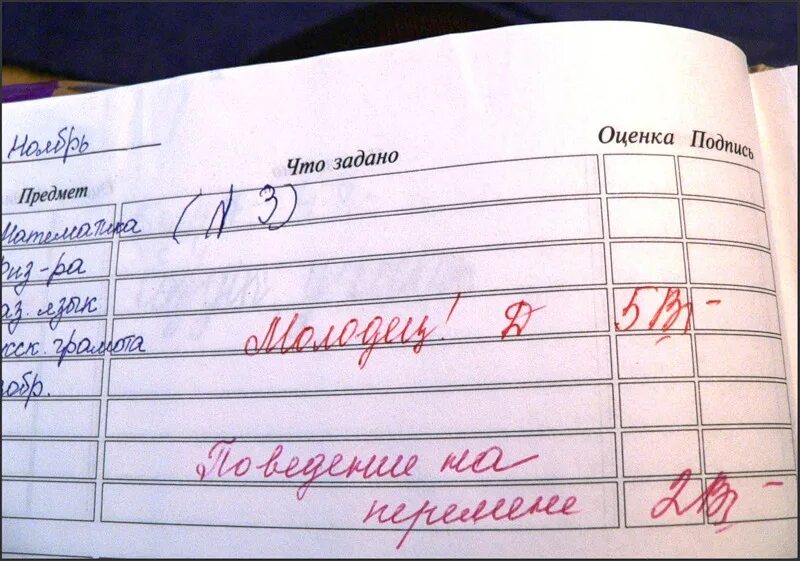 Ноябрь
Предмет Что задано Оценка Подпись
Математика (N 3)
физ-ра
каз. язык
Молодец! Д 5
грамота
Поведение на
перемене 2